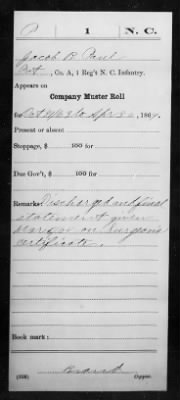 P 1 N. C.
Jacob B. Paul
Pvt, Co. A, 1 Reg't N. C. Infantry.
Appears on
Company Muster Roll
for to Apr 30, 186
Present or absent
Stoppage, $ 100 for
Due Gov't, $ 100 for
Remarks: Discharged and final
statement given
on surgeon's
certificate.
Book mark:
(358) Copyist.